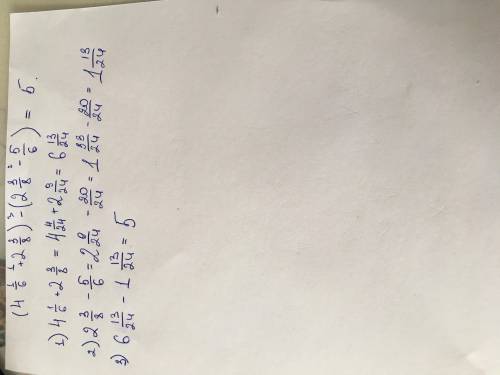 (4 1/6 + 2 3/8) - (2 3/8 - 5/6) = 5.
1) 4 1/6 + 2 3/8 = 4 4/24 + 2 9/24 = 6 13/24
2) 2 3/8 - 5/6 = 2 9/24 - 20/24 = 1 33/24 - 20/24 = 1 13/24
3) 6 13/24 - 1 13/24 = 5